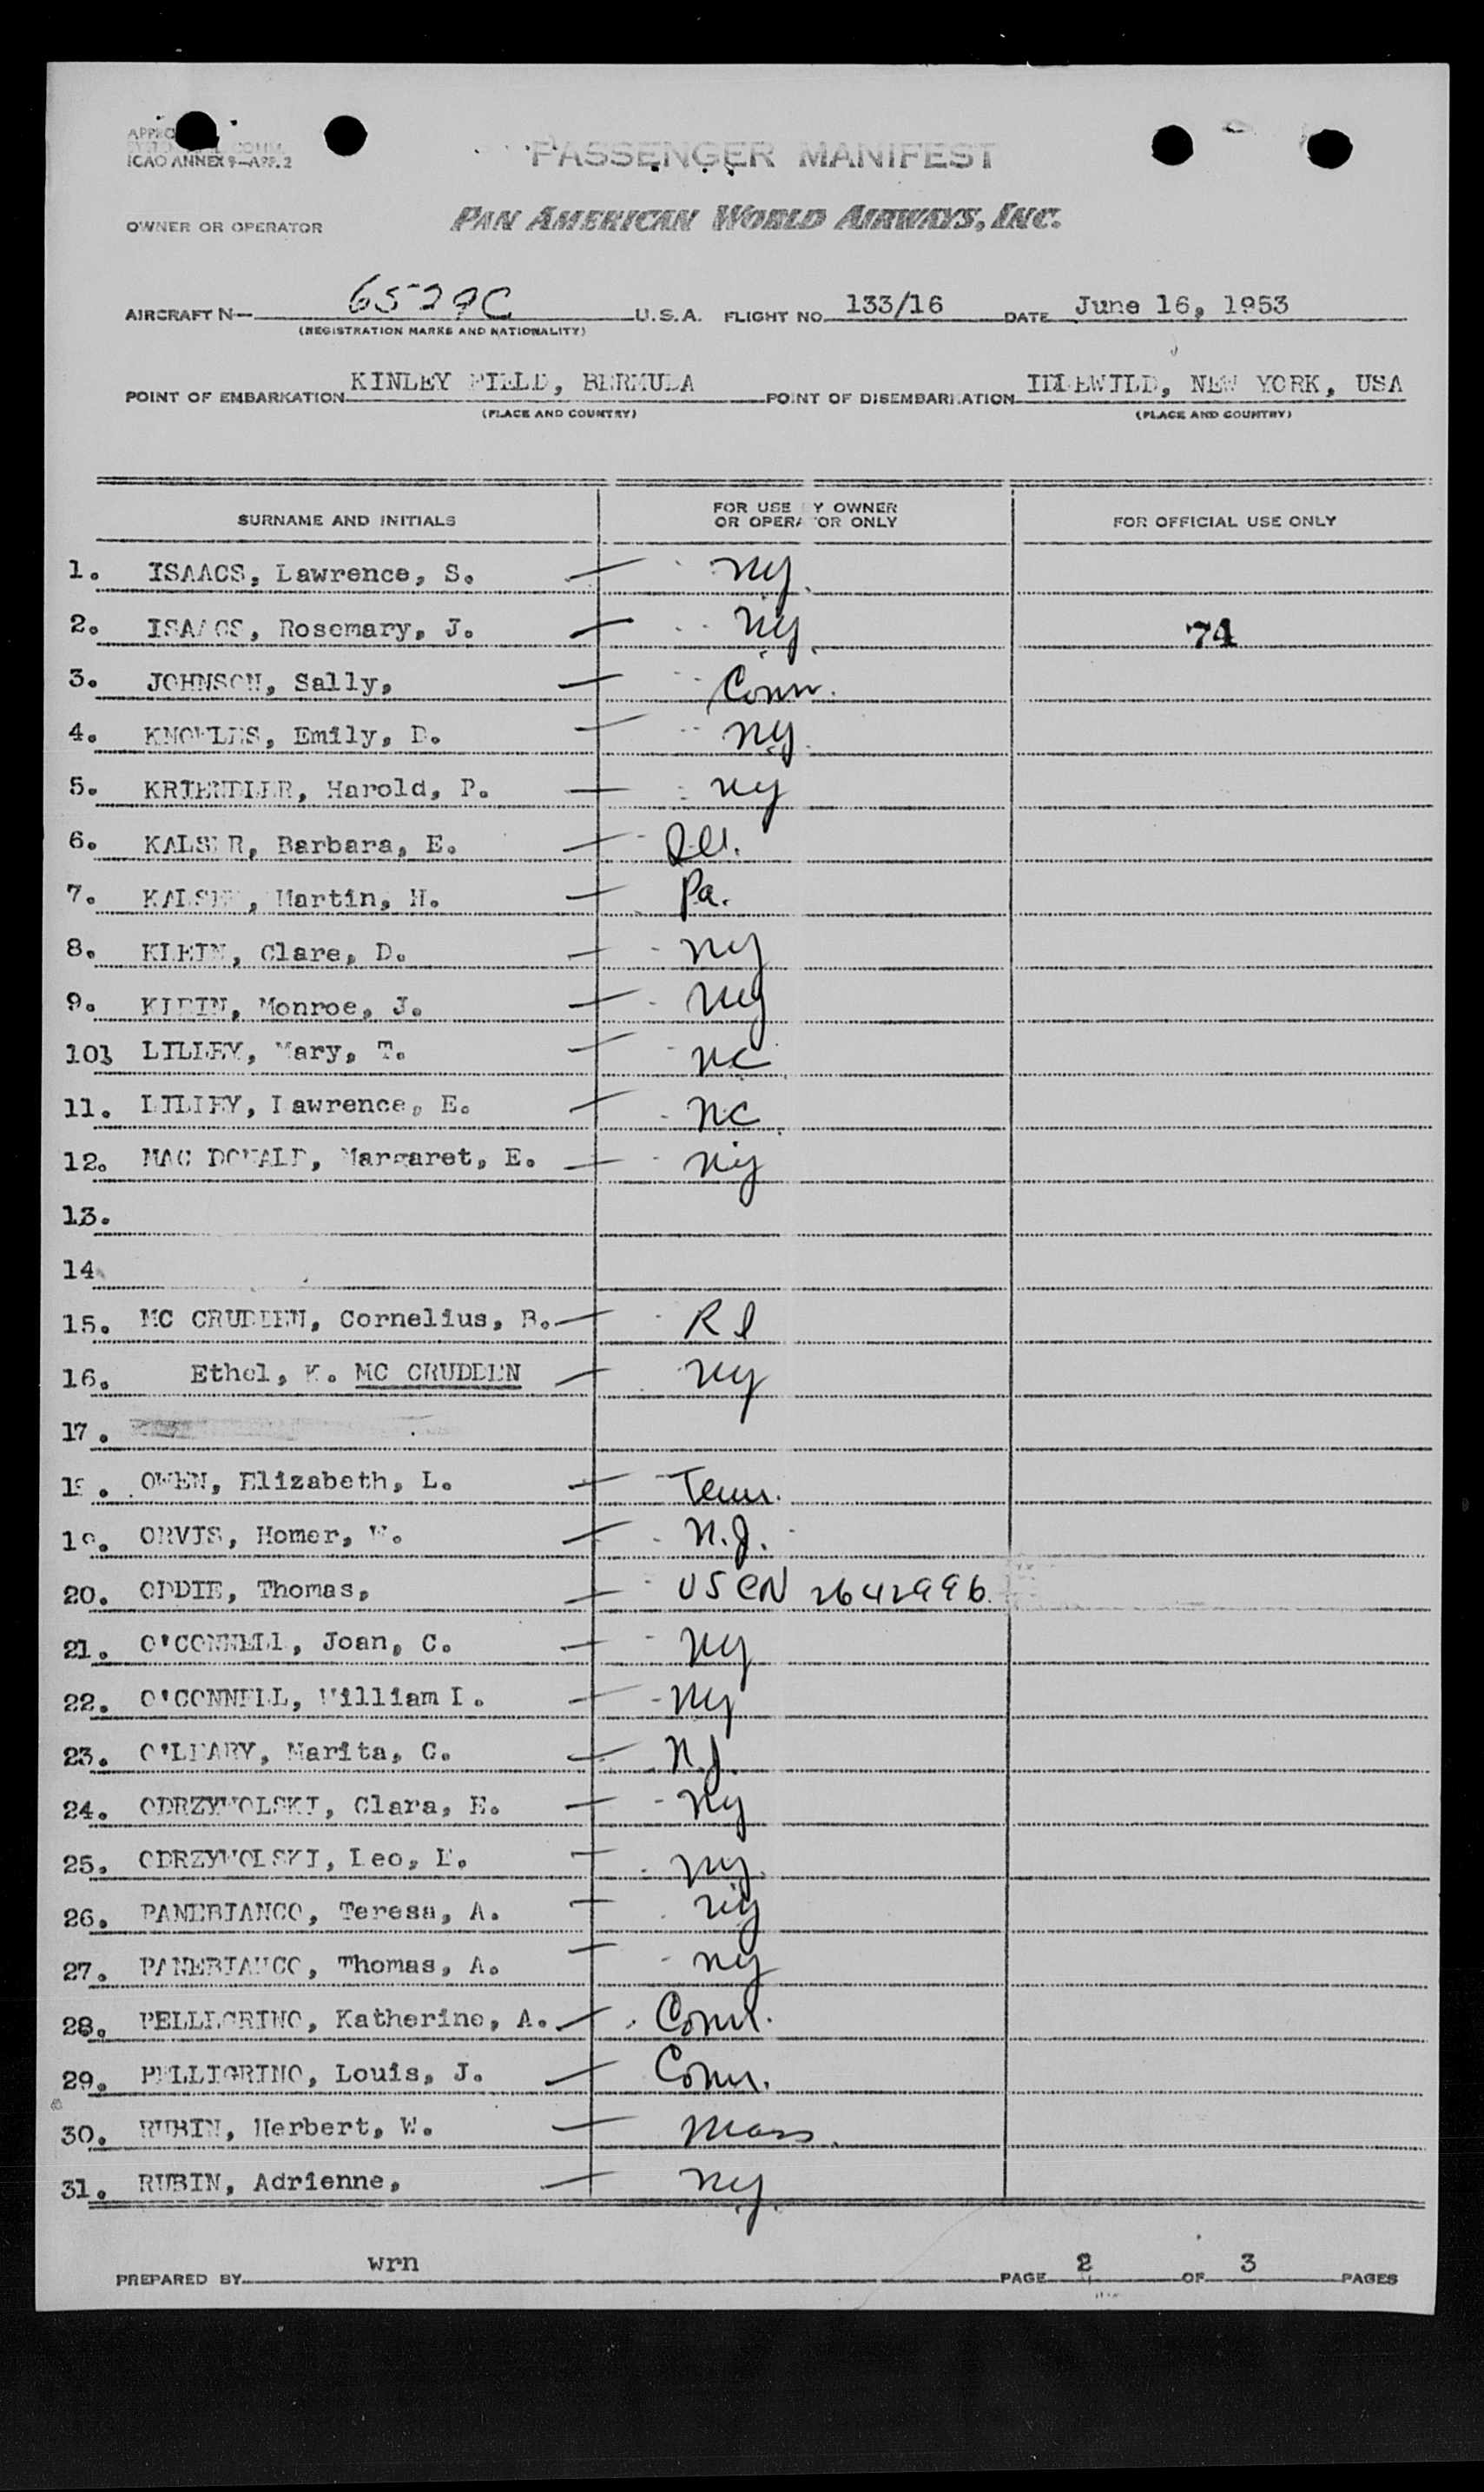 ICAO ANNEX 9—APP. 2
PASSENGER MANIFEST
OWNER OR OPERATOR PAN AMERICAN WORLD AIRWAYS, INC.
AIRCRAFT N— 6529C U.S.A. FLIGHT NO. 133/16 DATE June 16, 1953
(REGISTRATION MARKS AND NATIONALITY)
POINT OF EMBARKATION KINLEY FIELD, BERMUDA POINT OF DISEMBARKATION IDLEWILD, NEW YORK, USA
(PLACE AND COUNTRY) (PLACE AND COUNTRY)
SURNAME AND INITIALS FOR USE BY OWNER OR OPERATOR ONLY FOR OFFICIAL USE ONLY
1. ISAACS, Lawrence, S. — NY.
2. ISAACS, Rosemary, J. — NY. 74
3. JOHNSON, Sally, — Conn.
4. KNOWLES, Emily, D. — NY.
5. KRIENDLER, Harold, P. — NY
6. KALSER, Barbara, E. — Ill.
7. KALSER, Martin, H. — Pa.
8. KLEIN, Clare, D. — NY
9. KLEIN, Monroe, J. — NY
10. LILLEY, Mary, T. — NC
11. LILLEY, Lawrence, E. — NC.
12. MAC DONALD, Margaret, E. — NY
13.
14
15. MC CRUDDEN, Cornelius, B. — RI
16. Ethel, K. MC CRUDDEN — NY
17.
18. OWEN, Elizabeth, L. — Tenn.
19. ORVIS, Homer, W. — N.J.
20. ODDIE, Thomas, — USCN 2642996
21. O'CONNELL, Joan, C. — NY
22. O'CONNELL, William I. — NY
23. O'LEARY, Marita, C. — N.J.
24. ODRZYWOLSKI, Clara, E. — NY
25. ODRZYWOLSKI, Leo, — NY.
26. PANEBIANCO, Teresa, A. — NY
27. PANEBIANCO, Thomas, A. — NY
28. PELLEGRINO, Katherine, A. — Conn.
29. PELLIGRINO, Louis, J. — Conn.
30. RUBIN, Herbert, W. — Mass.
31. RUBIN, Adrienne, — NY.
PREPARED BY wrn PAGE 2 OF 3 PAGES